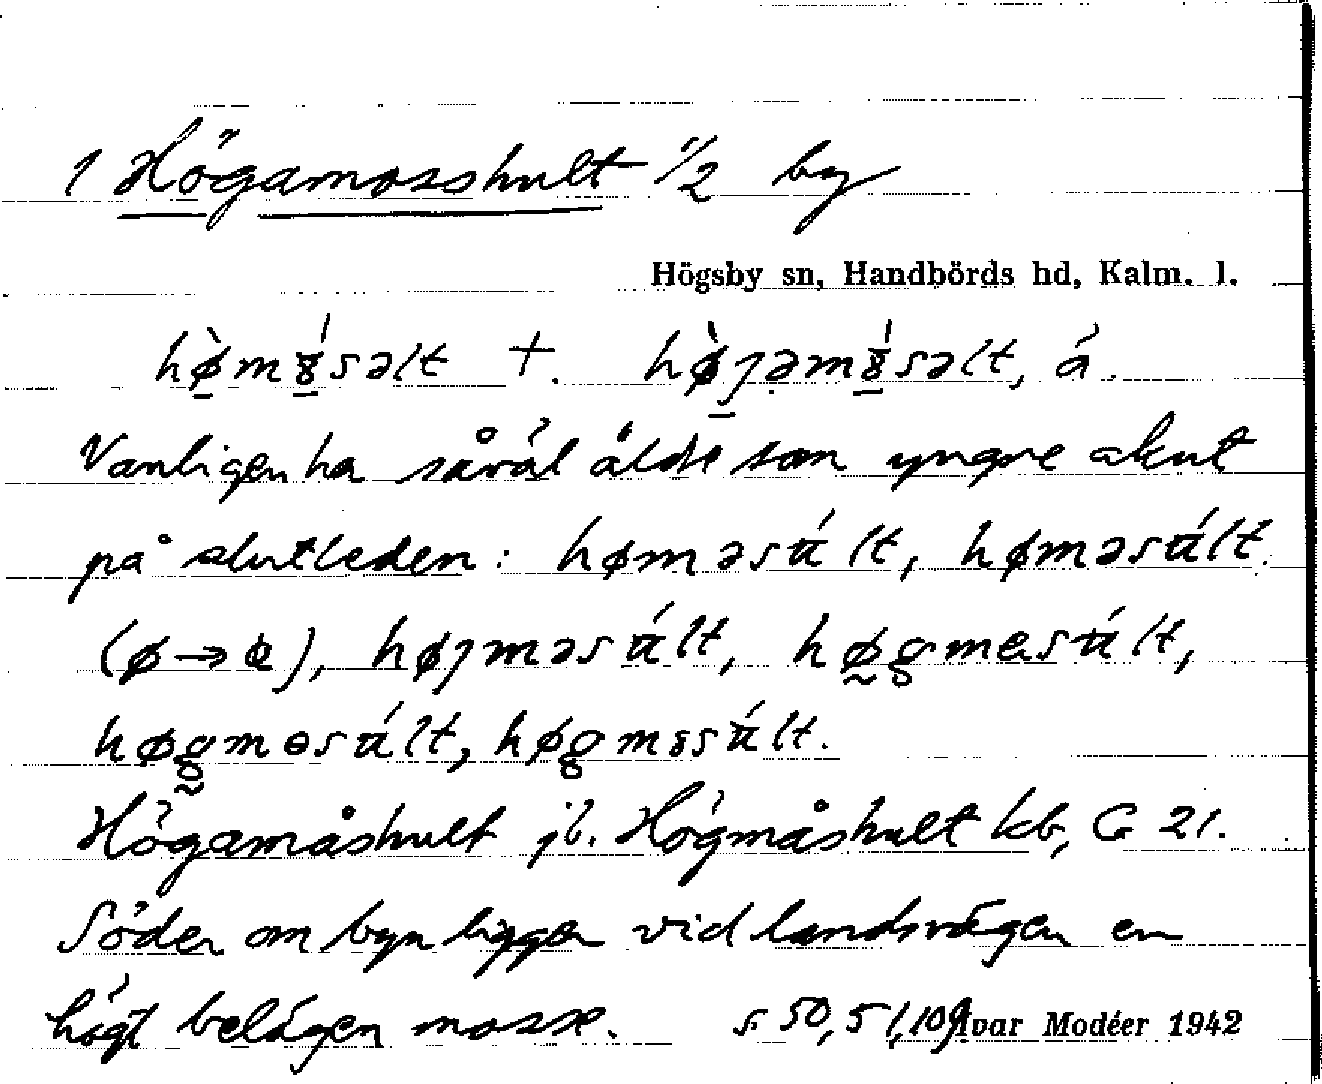 1 Högamosshult 1/2 by
Högsby sn, Handbörds hd, Kalm. l.
hø̀mȣ́səlt †. hø̀ȷəmȣ́səlt, á.
Vanligen ha såväl äldre som yngre akut
på slutleden: høməsú́lt, høməsú́lt
(ø→ꝍ), høȷməsú́lt, høgmesú́lt,
høgmɵsú́lt, høgmȣsú́lt.
Högamåshult jb. Högmåshult kb, G 21.
Söder om byn ligger vid landsvägen en
högt belägen mosse. s. 50, 51, 109 Ivar Modéer 1942